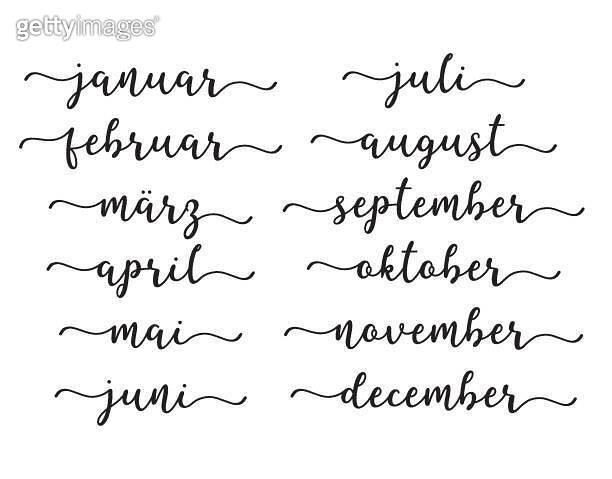 gettyimages®
januar
februar
märz
april
mai
juni
juli
august
september
oktober
november
december